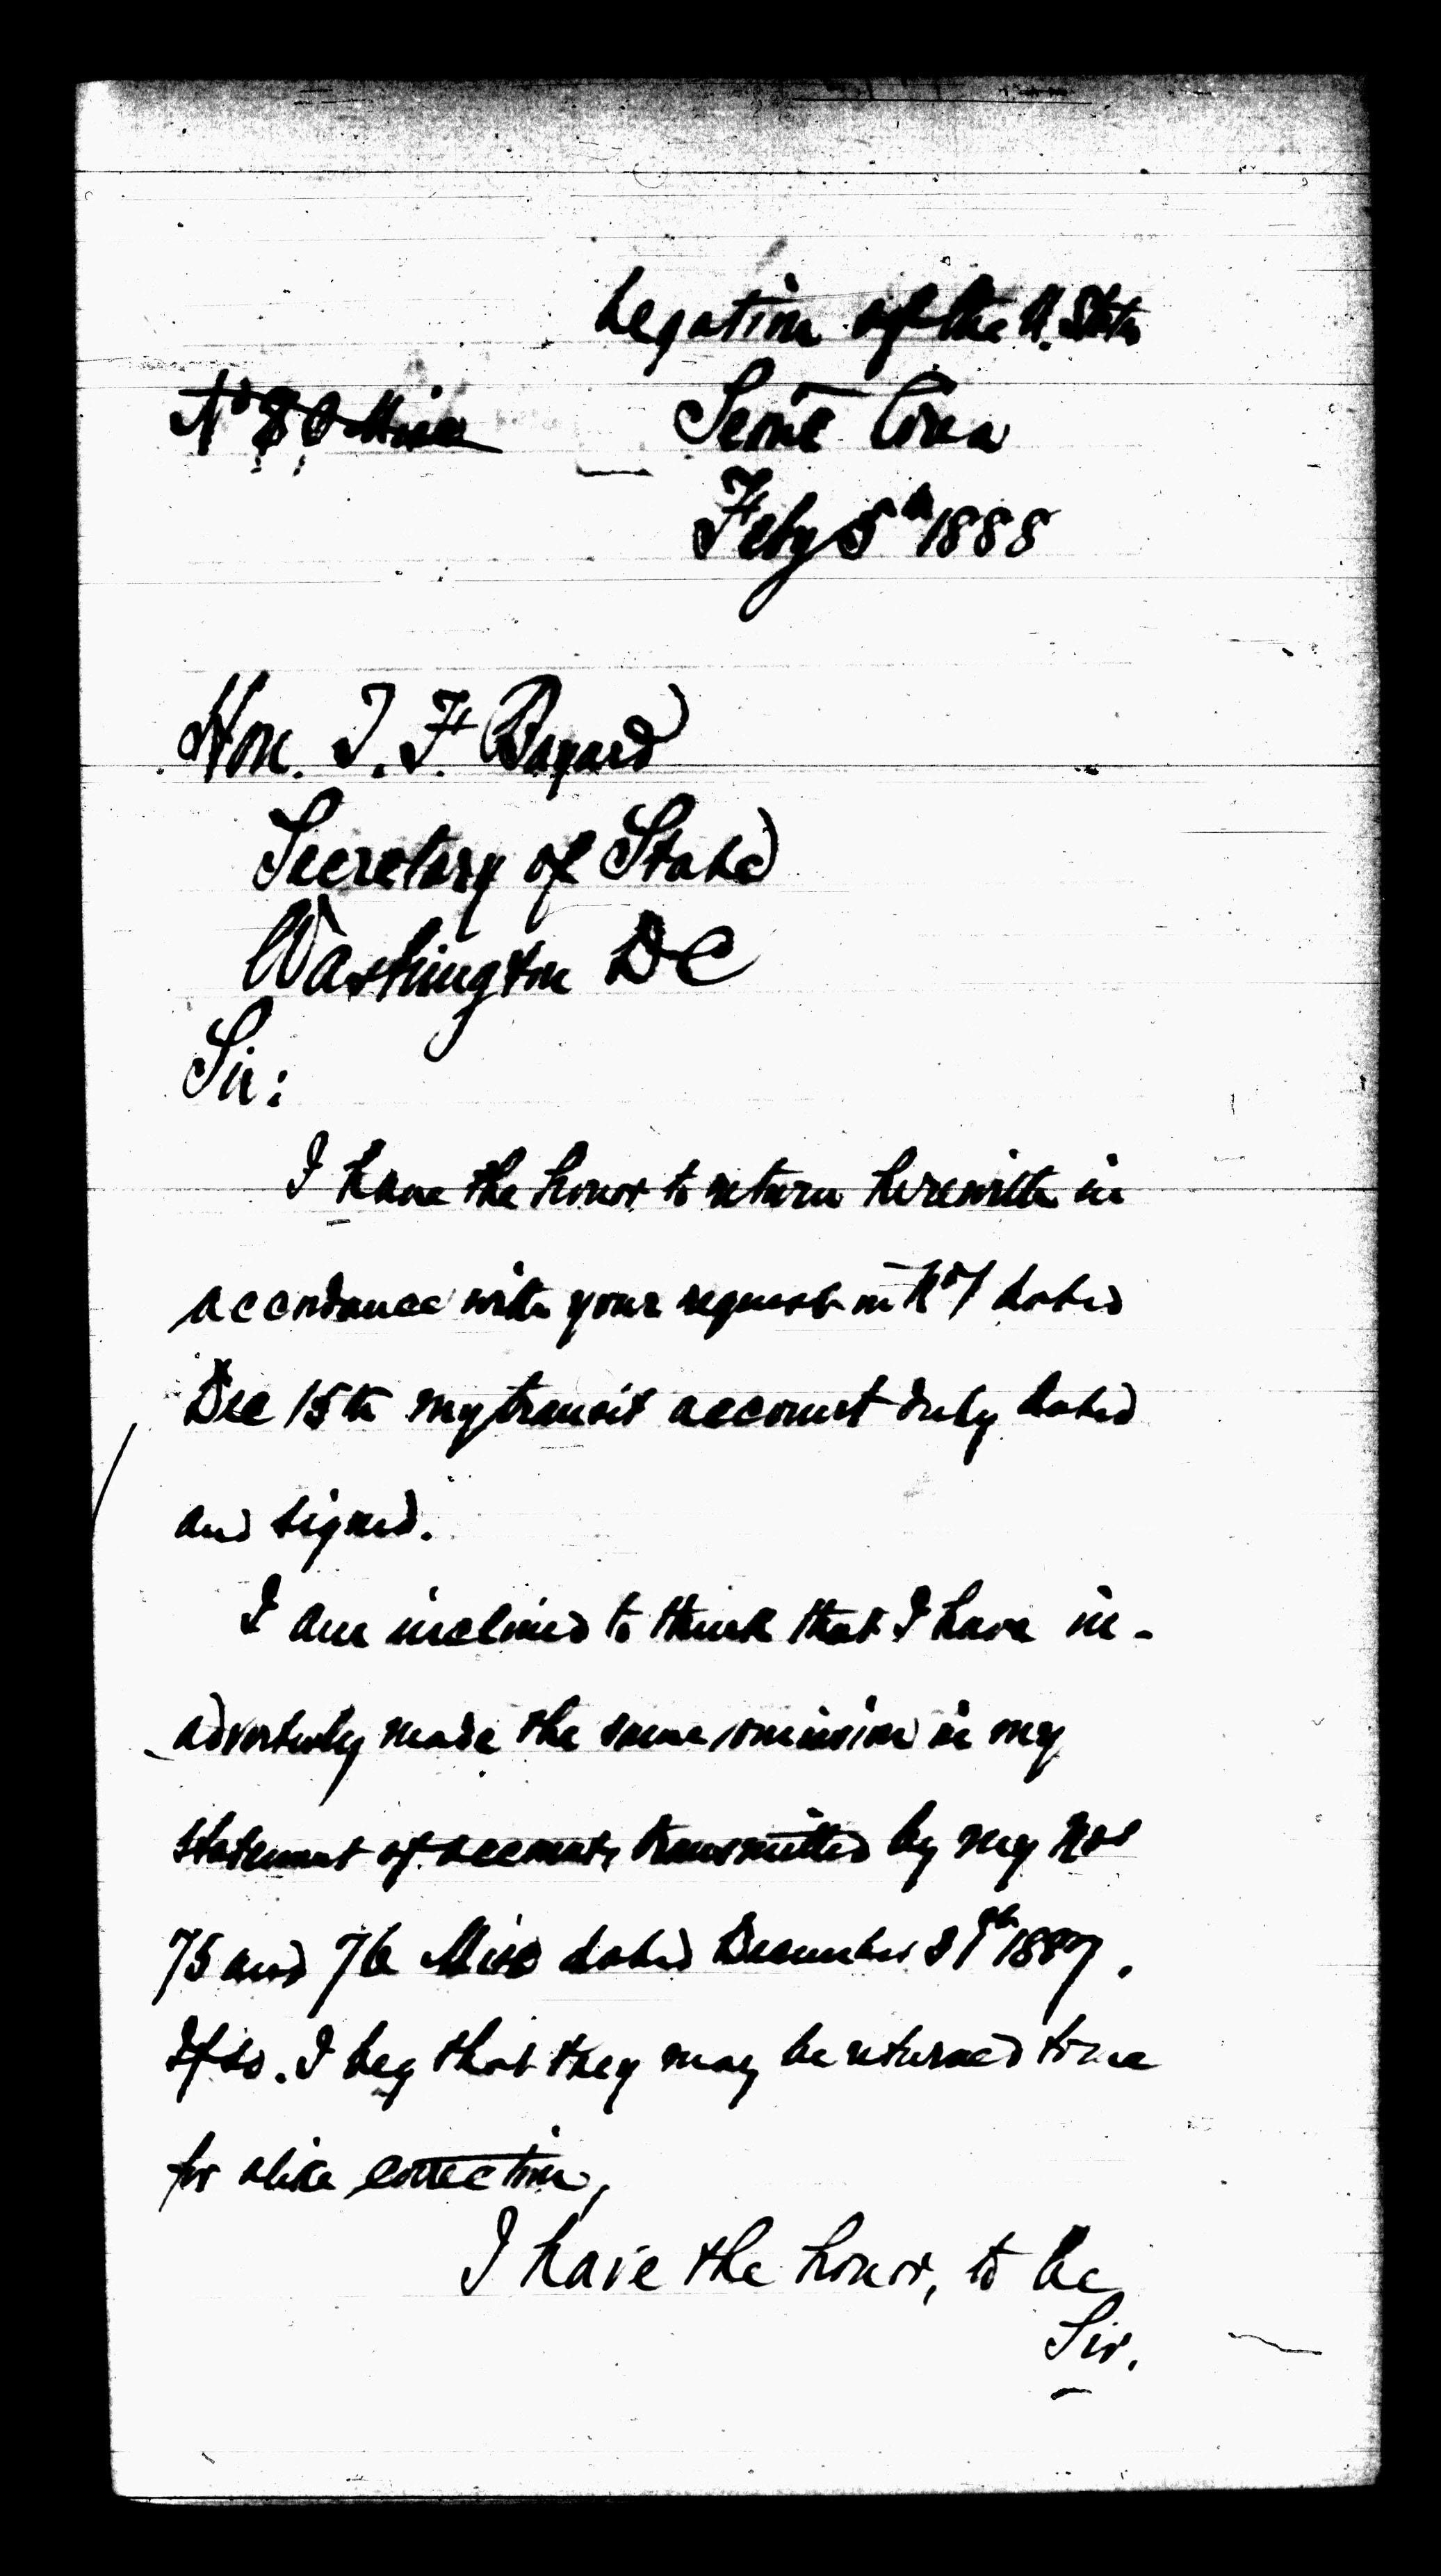 Legation of the U. States
No 80 Misc Seoul Corea
Feby 5th 1888
Hon. T. F. Bayard
Secretary of State
Washington DC
Sir:
I have the honor to return herewith in
accordance with your request in No 7 dated
Dec 15th my transit account duly dated
and signed.
I am inclined to think that I have in-
advertently made the same omission in my
statement of accounts transmitted by my Nos
75 and 76 Misc dated December 31st 1887.
If so. I beg that they may be returned to me
for alike correction,
I have the honor, to be
Sir.